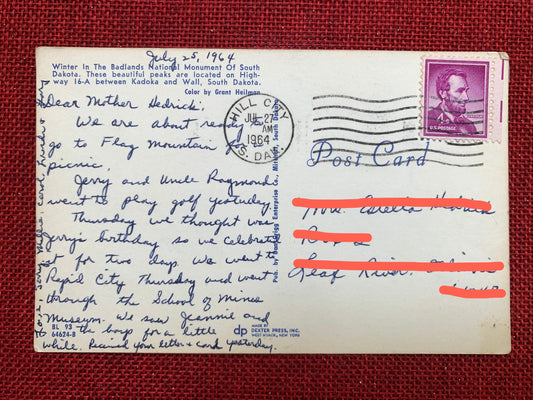 July 25, 1964
Winter In The Badlands National Monument Of South
Dakota. These beautiful peaks are located on High-
way 16-A between Kadoka and Wall, South Dakota.
Color by Grant Heilman
Dear Mother Hedrick:
We are about ready to
go to Flag Mountain for
picnic.
Jerry and Uncle Raymond
went to play golf yesterday.
Thursday we thought was
Jerry's birthday so we celebrate
it for two days. We went to
Rapid City Thursday and went
through the School of Mines
Museum. We saw Jeannie and
the boys for a little
while. Received your letter & card yesterday.
Love,
BL 93
64624-B
Pub. by Enterprise Co., Mitchell, South Dakota
dp
MADE BY
DEXTER PRESS, INC.
WEST NYACK, NEW YORK
HILL CITY
JUL 27
AM
1964
S. DAK.
4¢
U.S. POSTAGE
Post Card